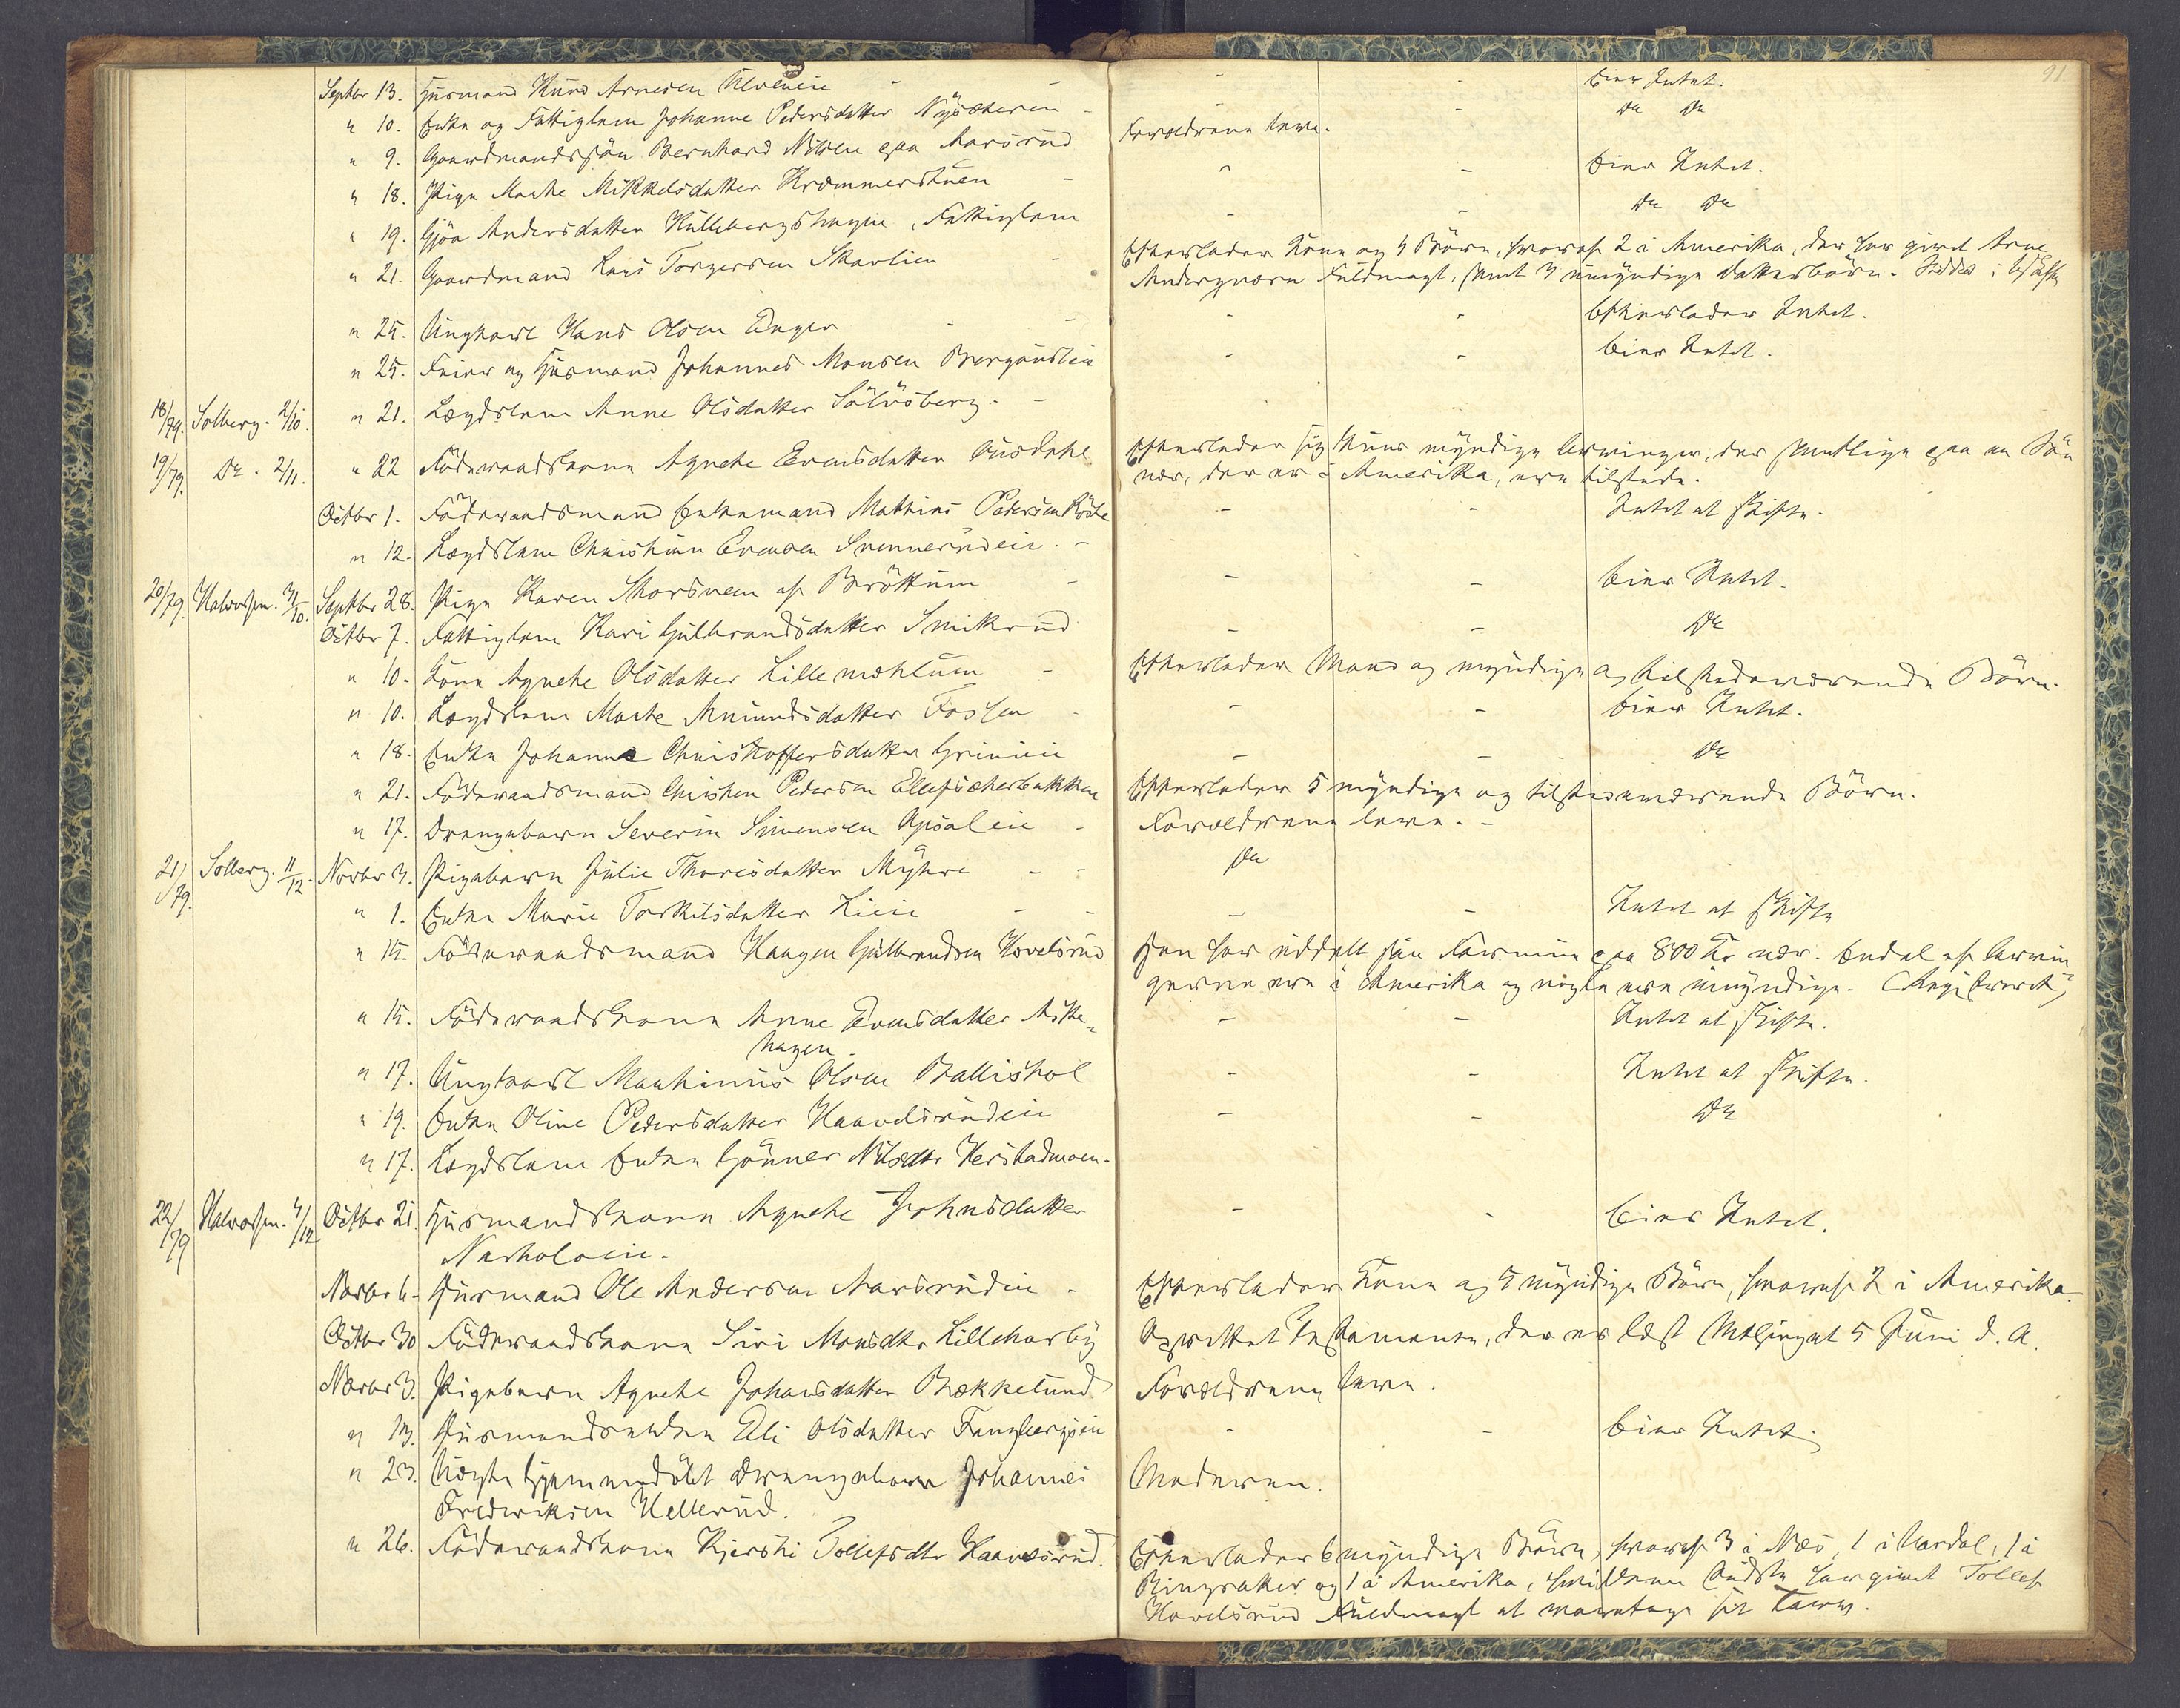 91
Septbr 13. Husmand Knud Arnesen Ulveneie - - - Eier Intet.
" 10. Enke og Fattiglem Johanne Pedersdatter Nysæteren - - - Do Do
" 9. Gaardmandssøn Bernhard Nilsen paa Aarsrud Forældrene leve.
" 18. Pige Marthe Mikkelsdatter Kræmmerstuen - - - Eier Intet.
" 19. Gjøa Andersdatter Hullebergshagen, Fattiglem - - Do Do
" 21. Gaardmand Lars Torgersen Skavlien - Efterlader Kone og 4 Børn, hvoraf 2 i Amerika, der har givet Arne
Andersgaren Fuldmagt, samt 3 umyndige Datterbørn.
" 25. Ungkarl Hans Olsen Enger - - - Efterlader Intet.
" 25. Feier og Husmand Johannes Monsen Bergundeie - - Eier Intet.
18/79. Solberg. 2/10. " 21. Lægdslem Anne Olsdatter Sølvsberg. -
19/79. Do. 2/11. " 22 Føderaadskone Agnethe Evensdatter Aasdahl Efterlader sig kuns myndige Arvinger, der samtlige paa en Søn
nær, der er i Amerika, ere tilstede.
Octbr 1. Føderaadsmand Enkemand Mathias Pedersen Røste - - Intet at skifte.
" 12. Lægdslem Christian Evensen Svennerudeie. -
20/79. Halvorsen. 31/10. Septbr 28. Pige Karen Thorsveen af Brøttum - - - Eier Intet.
Octbr 7. Fattiglem Kari Gulbrandsdatter Smikrud - - Do
" 10. Kone Agnethe Olsdatter Lillemæhlum - Efterlader Mand og myndige og tilstedeværende Børn.
" 10. Lægdslem Marte Amundsdatter Fossen - - - Eier Intet.
" 18. Enke Johanne Christoffersdatter Grinieie - - Do
" 21. Føderaadsmand Christen Pedersen Ellefsæterbakken Efterlader 5 myndige og tilstedeværende Børn.
" 17. Drengebarn Severin Simensen Opsaleie - Forældrene leve. -
21/79. Solberg. 11/12. Novbr 3. Pigebarn Julie Thoresdatter Myhre - - Do
" 1. Enke Marie Torkilsdatter Lieie - - - - Intet at skifte
" 15. Føderaadsmand Haagen Gulbrandsen Hovelsrud Han har uddelt sin Formue paa 800 Kr nær. Endel af Arvin
gerne ere i Amerika og nogle ere umyndige.
" 15. Føderaadskone Anne Evensdatter Aste-
hagen. - - Intet at skifte.
" 17. Ungkarl Mathinus Olsen Ballishol - - Intet at skifte.
" 19. Enke Oline Pedersdatter Haavelsrudeie - - Do
" 17. Lægdslem Enke Gønner Nilsdtr Herstadmoen.
22/79 Halvorsen. 4/12 Octbr 21. Husmandskone Agnethe Johnsdatter
Narholoeie. - - Eier Intet.
Novbr 6. Husmand Ole Andersen Aarsrudeie - Efterlader Kone og 5 myndige Børn, hvoraf 2 i Amerika.
Octbr 30 Føderaadskone Siri Monsdtr Lilleharby Oprettet Testamente, der er læst Mthinget 5 Juni d. A.
Novbr 3. Pigebarn Agnethe Johansdatter Bækkelund Forældrene leve.
" 13. Husmandsenke Eli Olsdatter Fangbergseie - - Eier Intet.
" 23. Uægte hjemmedøbt Drengebarn Johannes
Fredriksen Hellerud. Moderen.
" 26. Føderaadskone Kjersti Tollefsdtr Haavelsrud. Efterlader 6 myndige Børn, hvoraf 3 i Næs, 1 i Vardal, 1 i
Ringsaker og 1 i Amerika, hvilken sidste har givet Tollef
Hovelsrud Fuldmagt at modtage sit Tarv.